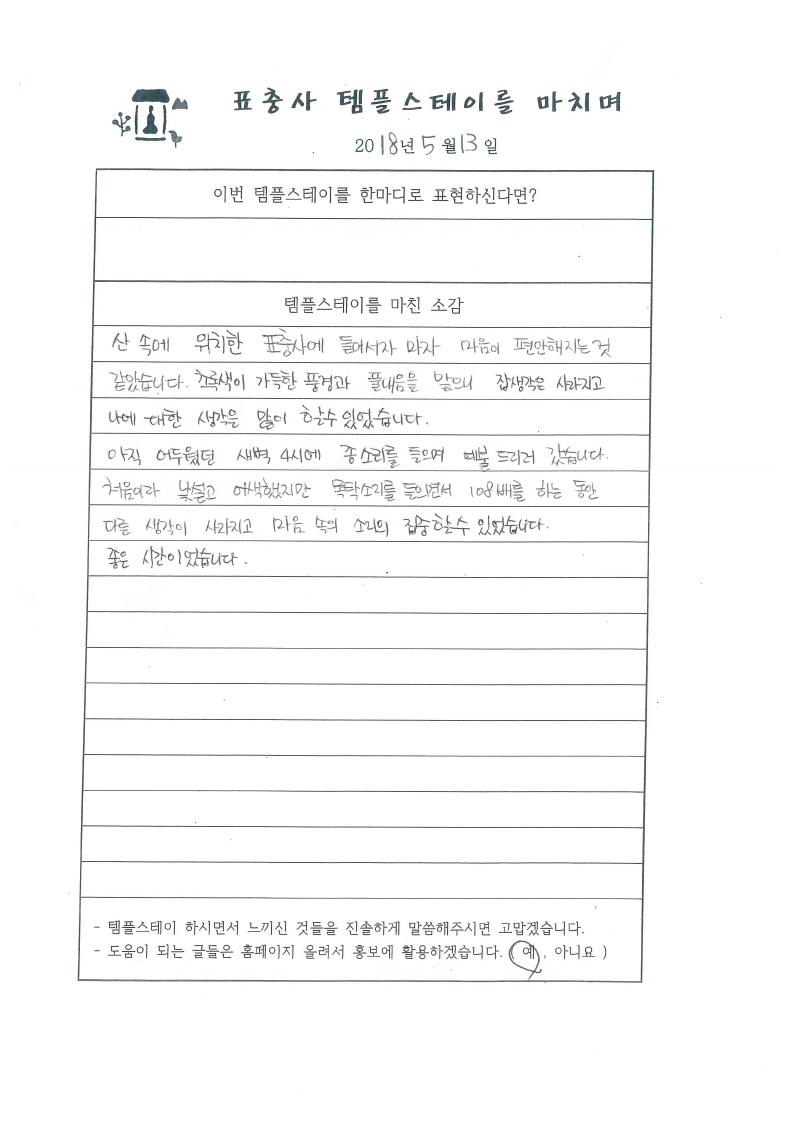 표충사 템플스테이를 마치며
2018년 5월 13일
이번 템플스테이를 한마디로 표현하신다면?
템플스테이를 마친 소감
산 속에 위치한 표충사에 들어서자 마자 마음이 편안해지는 것
같았습니다. 초록색이 가득한 풍경과 풀내음을 맡으니 잡생각은 사라지고
나에 대한 생각을 많이 할수 있었습니다.
아직 어두웠던 새벽 4시에 종소리를 들으며 예불 드리러 갔습니다.
처음이라 낯설고 어색했지만 목탁소리를 들으면서 108배를 하는 동안
다른 생각이 사라지고 마음 속의 소리의 집중할수 있었습니다.
좋은 시간이었습니다.
- 템플스테이 하시면서 느끼신 것들을 진솔하게 말씀해주시면 고맙겠습니다.
- 도움이 되는 글들은 홈페이지 올려서 홍보에 활용하겠습니다. ( 예 , 아니요 )